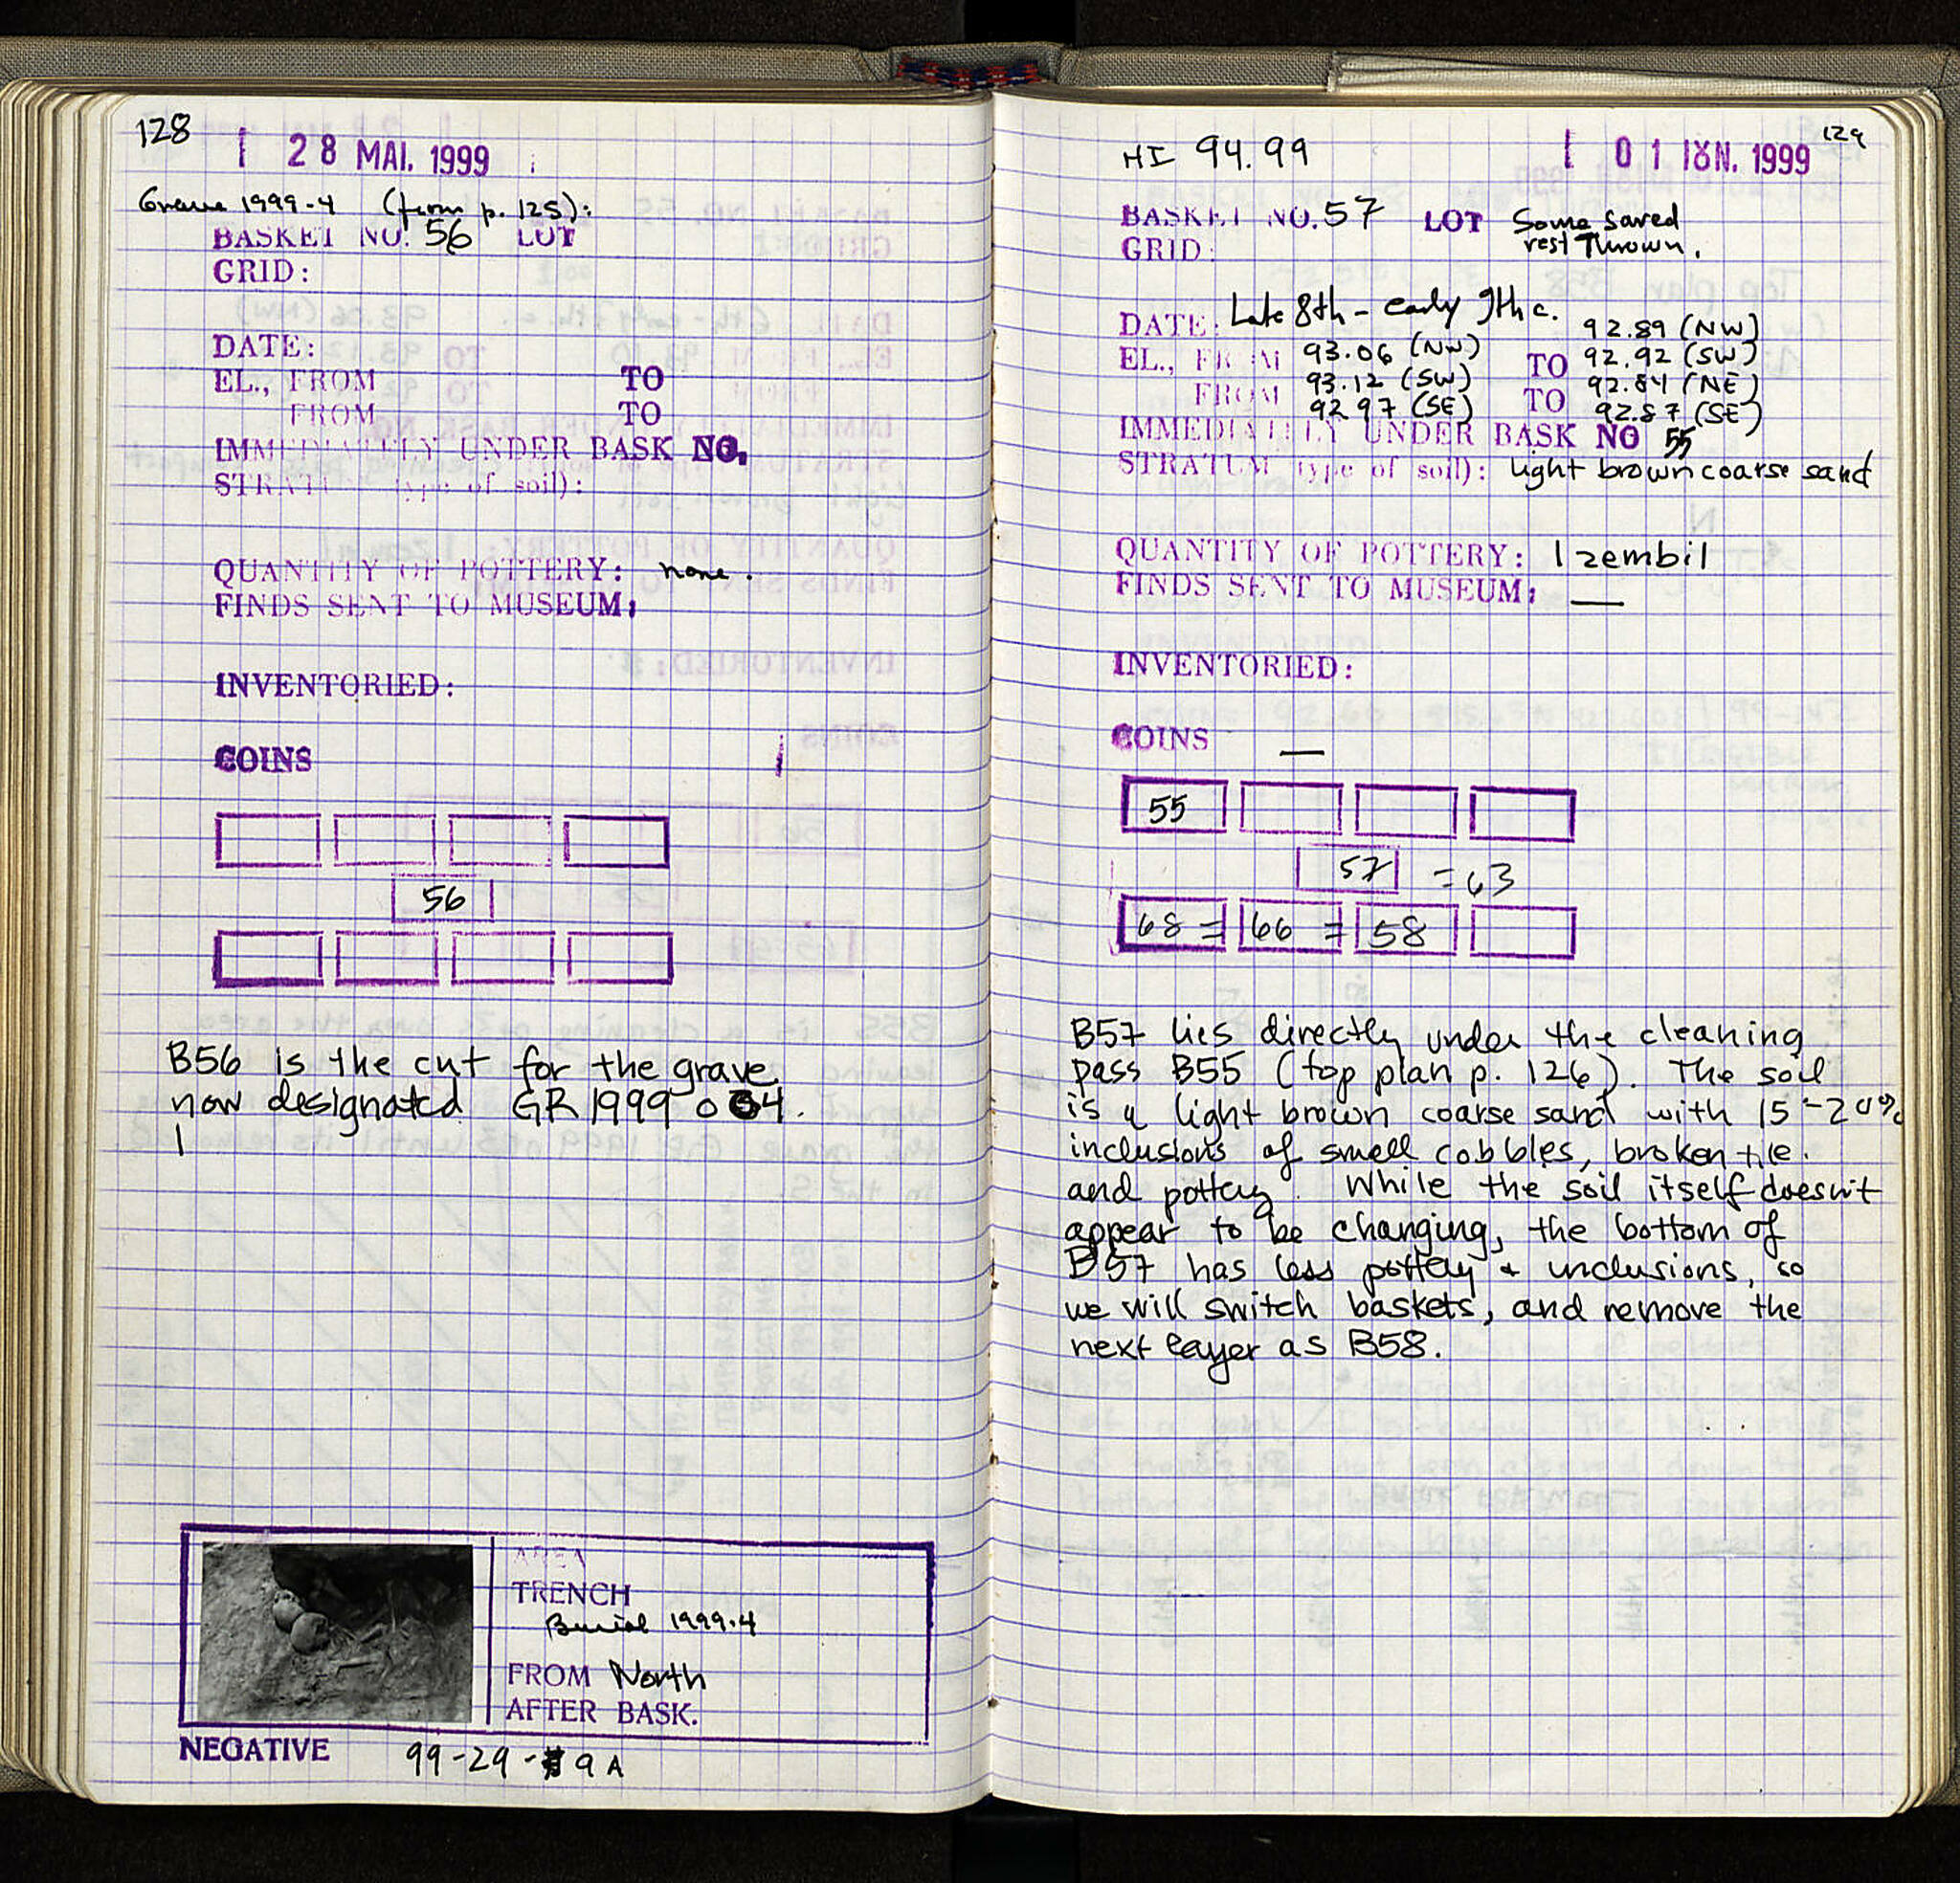 128
28 MAI. 1999
Grave 1999-4 (from p. 125):
BASKET NO. 56 LOT
GRID:
DATE:
EL., FROM TO
FROM TO
IMMEDIATELY UNDER BASK NO.
STRATUM (type of soil):
QUANTITY OF POTTERY: none.
FINDS SENT TO MUSEUM:
INVENTORIED:
COINS
56
B56 is the cut for the grave
now designated GR 1999 004.
AREA
TRENCH
Burial 1999.4
FROM North
AFTER BASK.
NEGATIVE 99-29-9A
129
HI 94.99 01 IUN. 1999
BASKET NO. 57 LOT Some saved
rest Thrown.
GRID:
DATE: Late 8th - early 9th c.
92.89 (NW)
EL., FROM 93.06 (NW) TO 92.92 (SW)
FROM 93.12 (SW) TO 92.84 (NE)
92.97 (SE) 92.87 (SE)
IMMEDIATELY UNDER BASK NO 55
STRATUM (type of soil): light brown coarse sand
QUANTITY OF POTTERY: 1 zembil
FINDS SENT TO MUSEUM: —
INVENTORIED:
COINS —
55
57 = 63
68 = 66 = 58
B57 lies directly under the cleaning
pass B55 (top plan p. 126). The soil
is a light brown coarse sand with 15-20%
inclusions of small cobbles, broken tile.
and pottery. While the soil itself doesn't
appear to be changing, the bottom of
B57 has less pottery + inclusions, so
we will switch baskets, and remove the
next layer as B58.